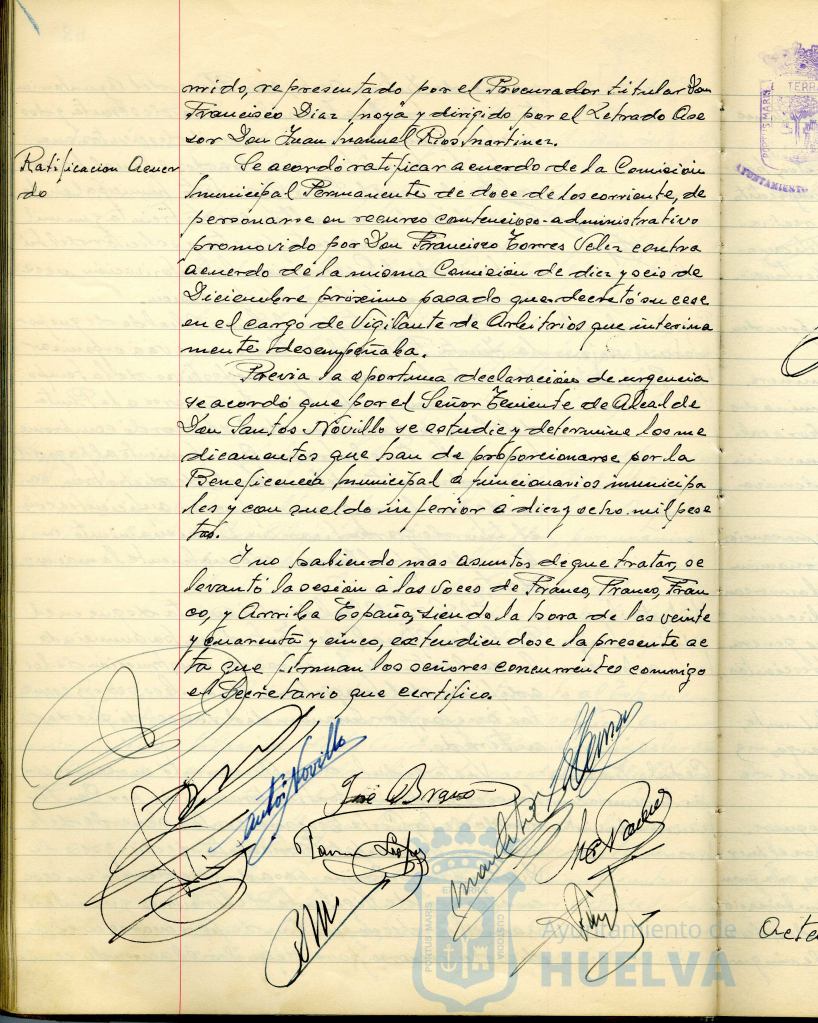 rrido, representado por el Procurador titular Don
Francisco Diaz Moya y dirigido por el Letrado Ase
sor Don Juan Manuel Rios Martinez.
Ratificacion Acuer
do
Se acordó ratificar acuerdo de la Comisión
Municipal Permanente de doce de los corriente, de
personarse en recurso contencioso-administrativo
promovido por Don Francisco Torres Velez contra
acuerdo de la misma Comisión de diez y ocio de
Diciembre próximo pasado que decretó su cese
en el cargo de Vigilante de Arbitrios que interina
mente desempeñaba.
Previa la oportuna declaración de urgencia
se acordó que por el Señor Teniente de Alcalde
Don Santos Novillo se estudie y determine los me
dicamentos que han de proporcionarse por la
Beneficencia Municipal a funcionarios municipa
les y con sueldo inferior á diez y ocho mil pese
tas.
Y no habiendo mas asuntos de que tratar, se
levantó la sesión á las voces de Franco, Franco, Fran
co, y Arriba España, siendo la hora de las veinte
y cuarenta y cinco, extendiendose la presente ac
ta que firman los señores concurrentes conmigo
el Secretario que certifico.
Santos Novillo
José Bravo
Ayuntamiento de
HUELVA
PORTUS MARIS
TERRA
AYUNTAMIENTO
Acta